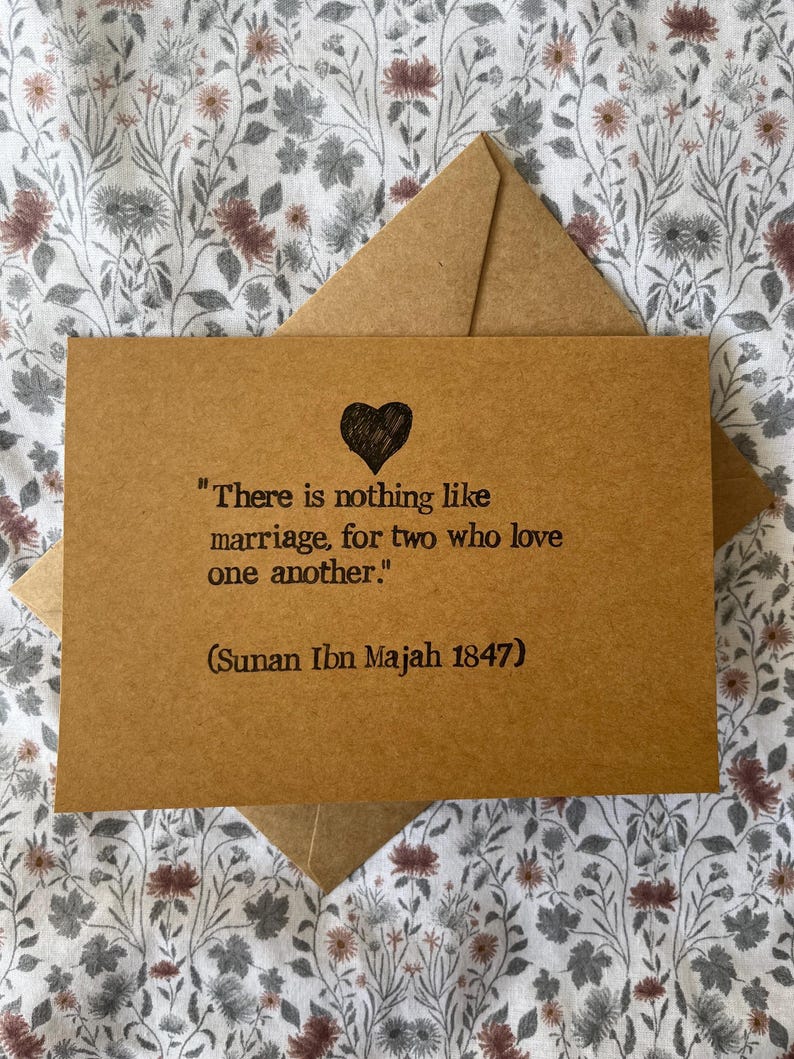 "There is nothing like
marriage, for two who love
one another."
(Sunan Ibn Majah 1847)